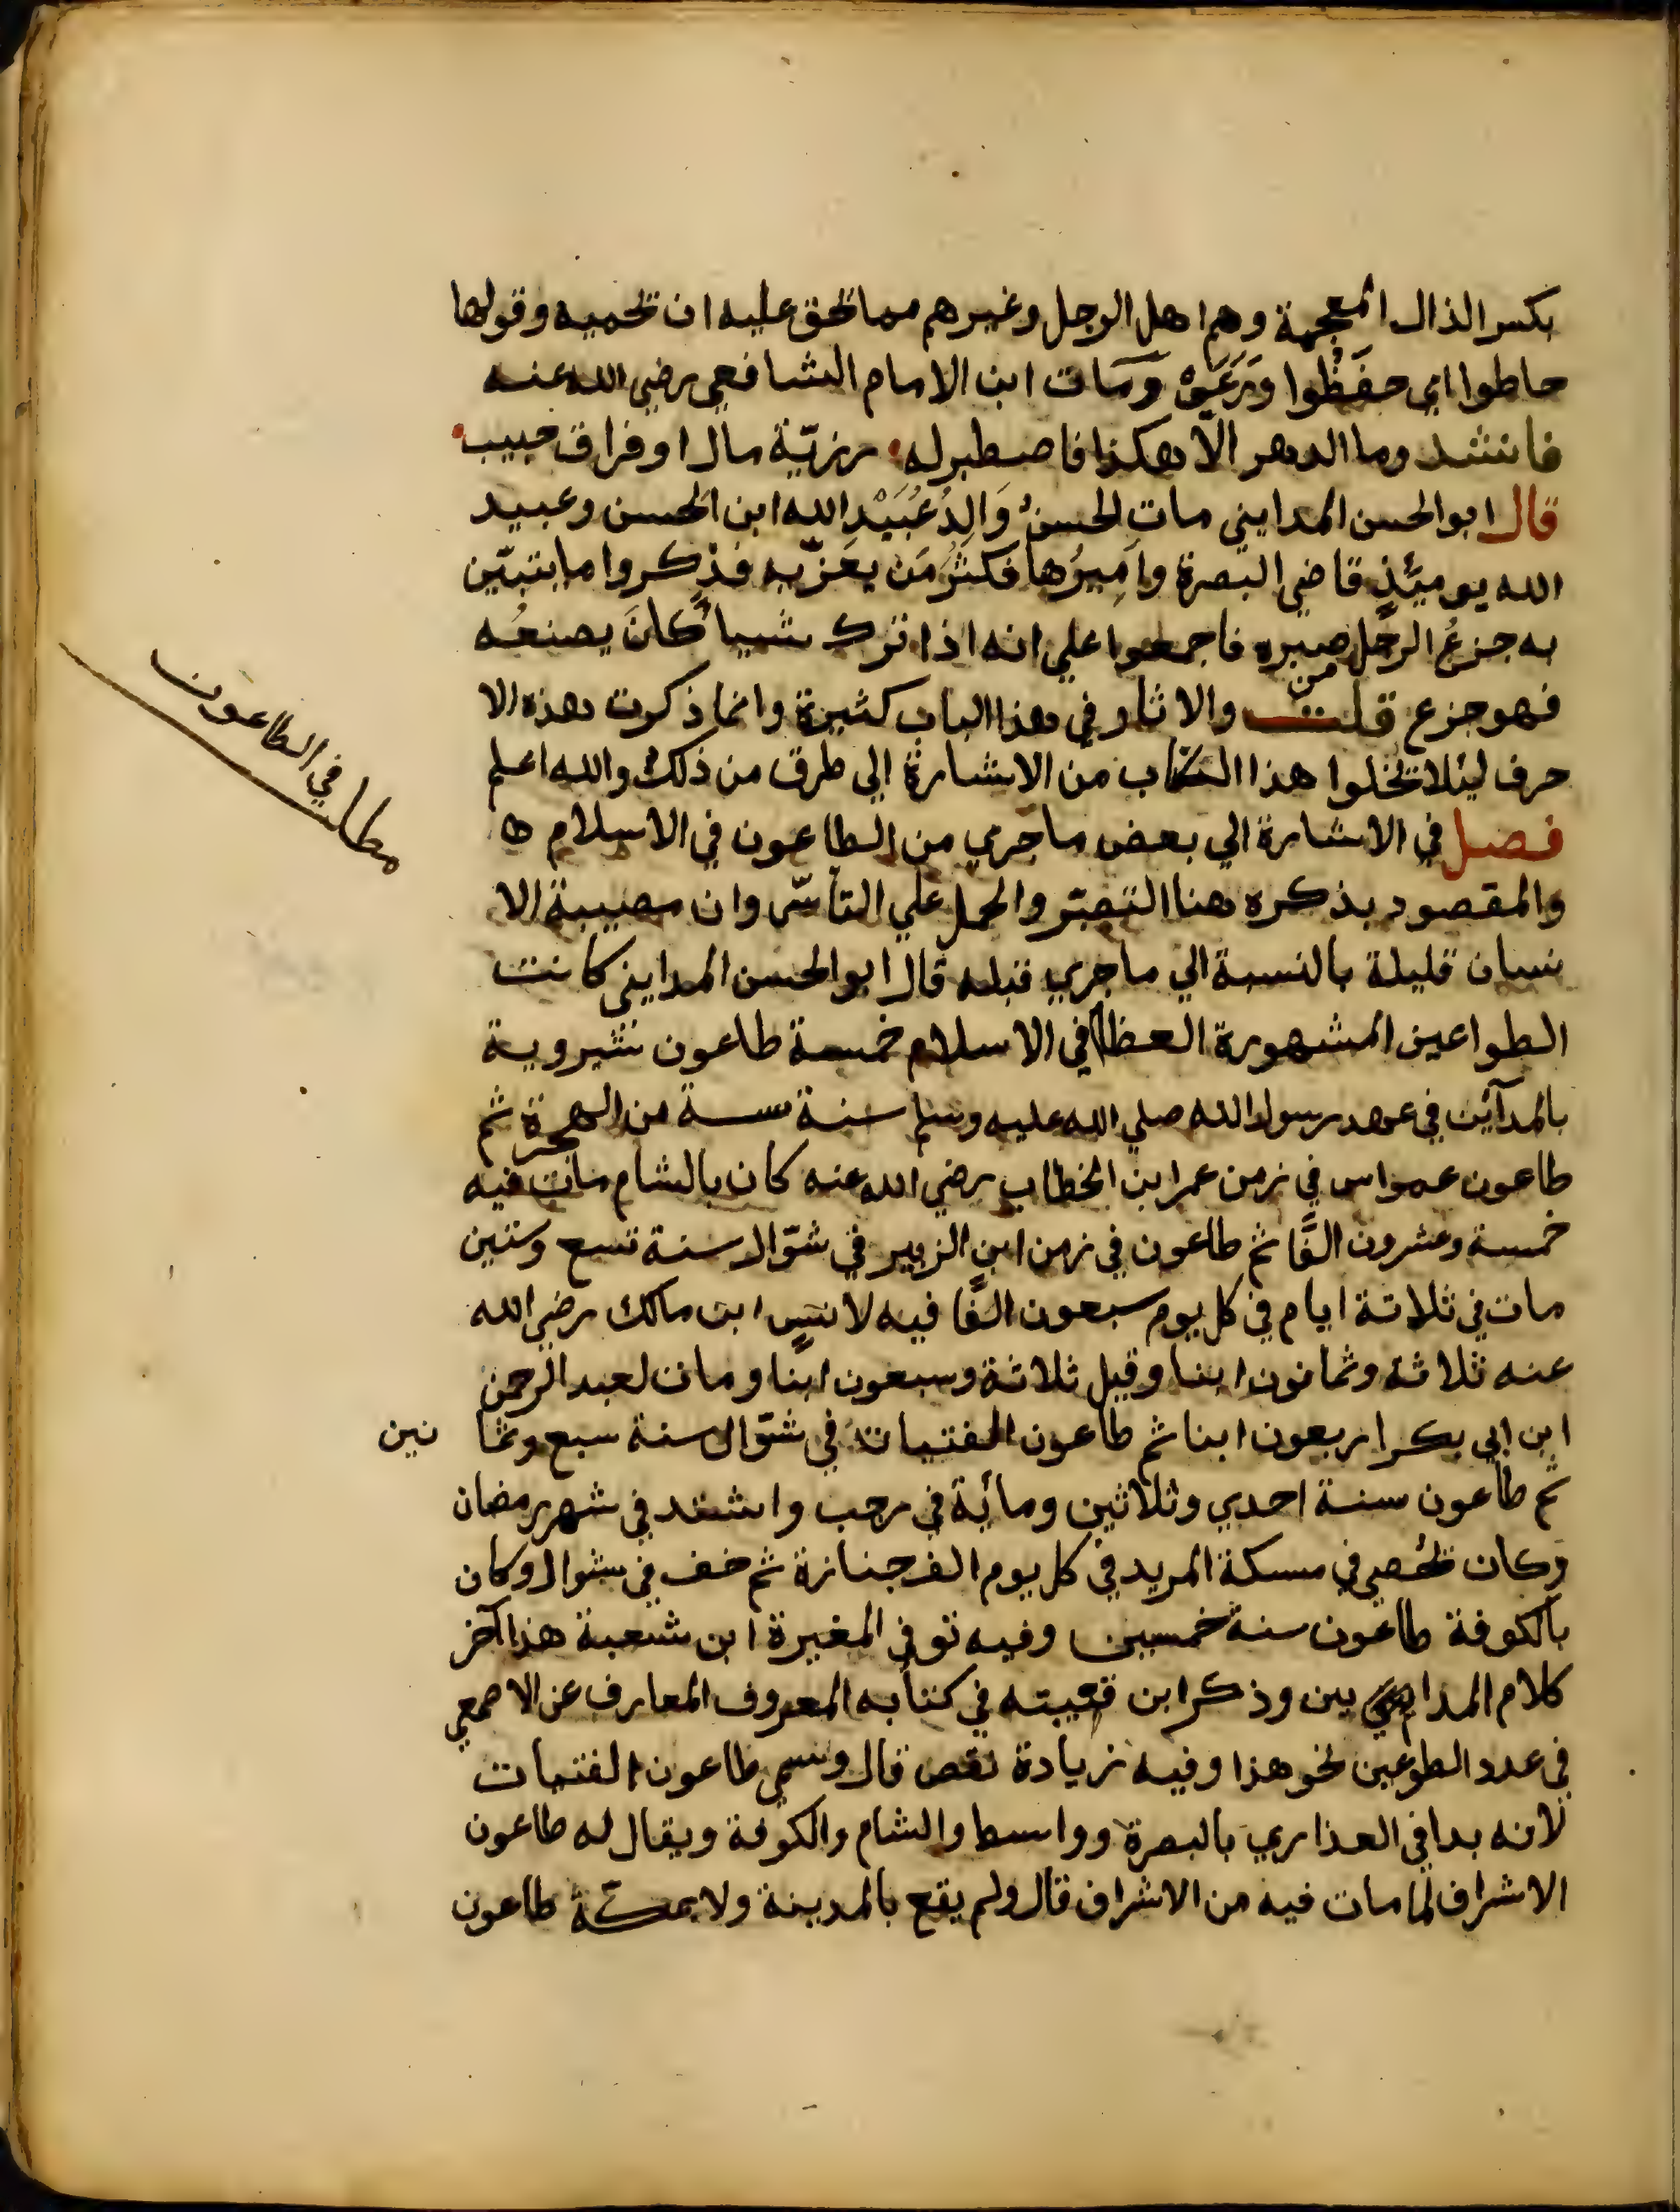 بكسر الذال المعجمة وهم اهل الرجل وغيرهم مما تحق عليه ان تحميه وقولها
حاطوا اي حفَظُوا وَرَعَوْ ومَات ابن الامام الشافعي رضي الله عنه
فانشد وما الدهر الا هكذا فاصطبر له رزيّة مال او فراق حبيب
قال ابو الحسن المدايني مات الحسنُ وَالِدُ عُبَيْدِ الله ابن الحسن وعبيد
الله يومئَذٍ قاضي البصرة واَمِيرُها فكثرُ مَن يعَزّيه فذكروا ما يتبيّن
به جزعُ الرجُل من صبره فاجمعوا علي انه اذا ترك شيياً كانَ يصنعُه
فهو جزع قلت والاثار في هذا الباب كثيرة وانما ذكرت هذه الا
حرف ليئلا تخلوا هذا الكتاب من الاشارة الي طرق من ذلك والله اعلم
فصل في الاشارة الي بعض ما جري من الطاعون في الاسلام ه
والمقصود بذكره هنا التصبّر والحمل علي التأسّي وان مصيبة الا
نسان قليلة بالنسبة الي ما جري قبله قال ابو الحسن المدايني كانت
الطواعين المشهورة العظام في الاسلام خمسة طاعون شيروية
بالمدآئن في عهد رسول الله صلي الله عليه وسلم سنة ستة من الهجرة ثم
طاعون عمواس في زمن عمر ابن الخطاب رضي الله عنه كان بالشام مات فيه
خمسة وعشرون الفًا ثم طاعون في زمن ابن الزبير في شوّال سنة تسع وستين
مات في ثلاثة ايام في كل يوم سبعون الفًا فيه لانسٍ ابن مالك رضي الله
عنه ثلاثة وثمانون ابنا وقيل ثلاثة وسبعون ابنًا ومات لعبد الرحمن
ابن ابي بكر اربعون ابنا ثم طاعون الفتيات في شوّال سنة سبع وثما نين
ثم طاعون سنة احدي وثلاثين ومائة في رجب واشتد في شهر رمضان
وكان تحُصي في مسكة المريد في كل يوم الف جنازة ثم خف في شوال وكان
بالكوفة طاعون سنة خمسين وفيه توفي المغيرة ابن شعبة هذا آخر
كلام المدا يين وذكر ابن قتيبته في كتابه المعروف المعارف عن الاصمعي
في عدد الطوعين نحو هذا وفيه زيادة نقص قال وسمي طاعون الفتيات
لانه بدا في العذاري بالبصرة وواسط والشام والكوفة ويقال له طاعون
الاشراف لما مات فيه من الاشراف قال ولم يقع بالمدينة ولا بمكة طاعون
مطلب في الطاعون